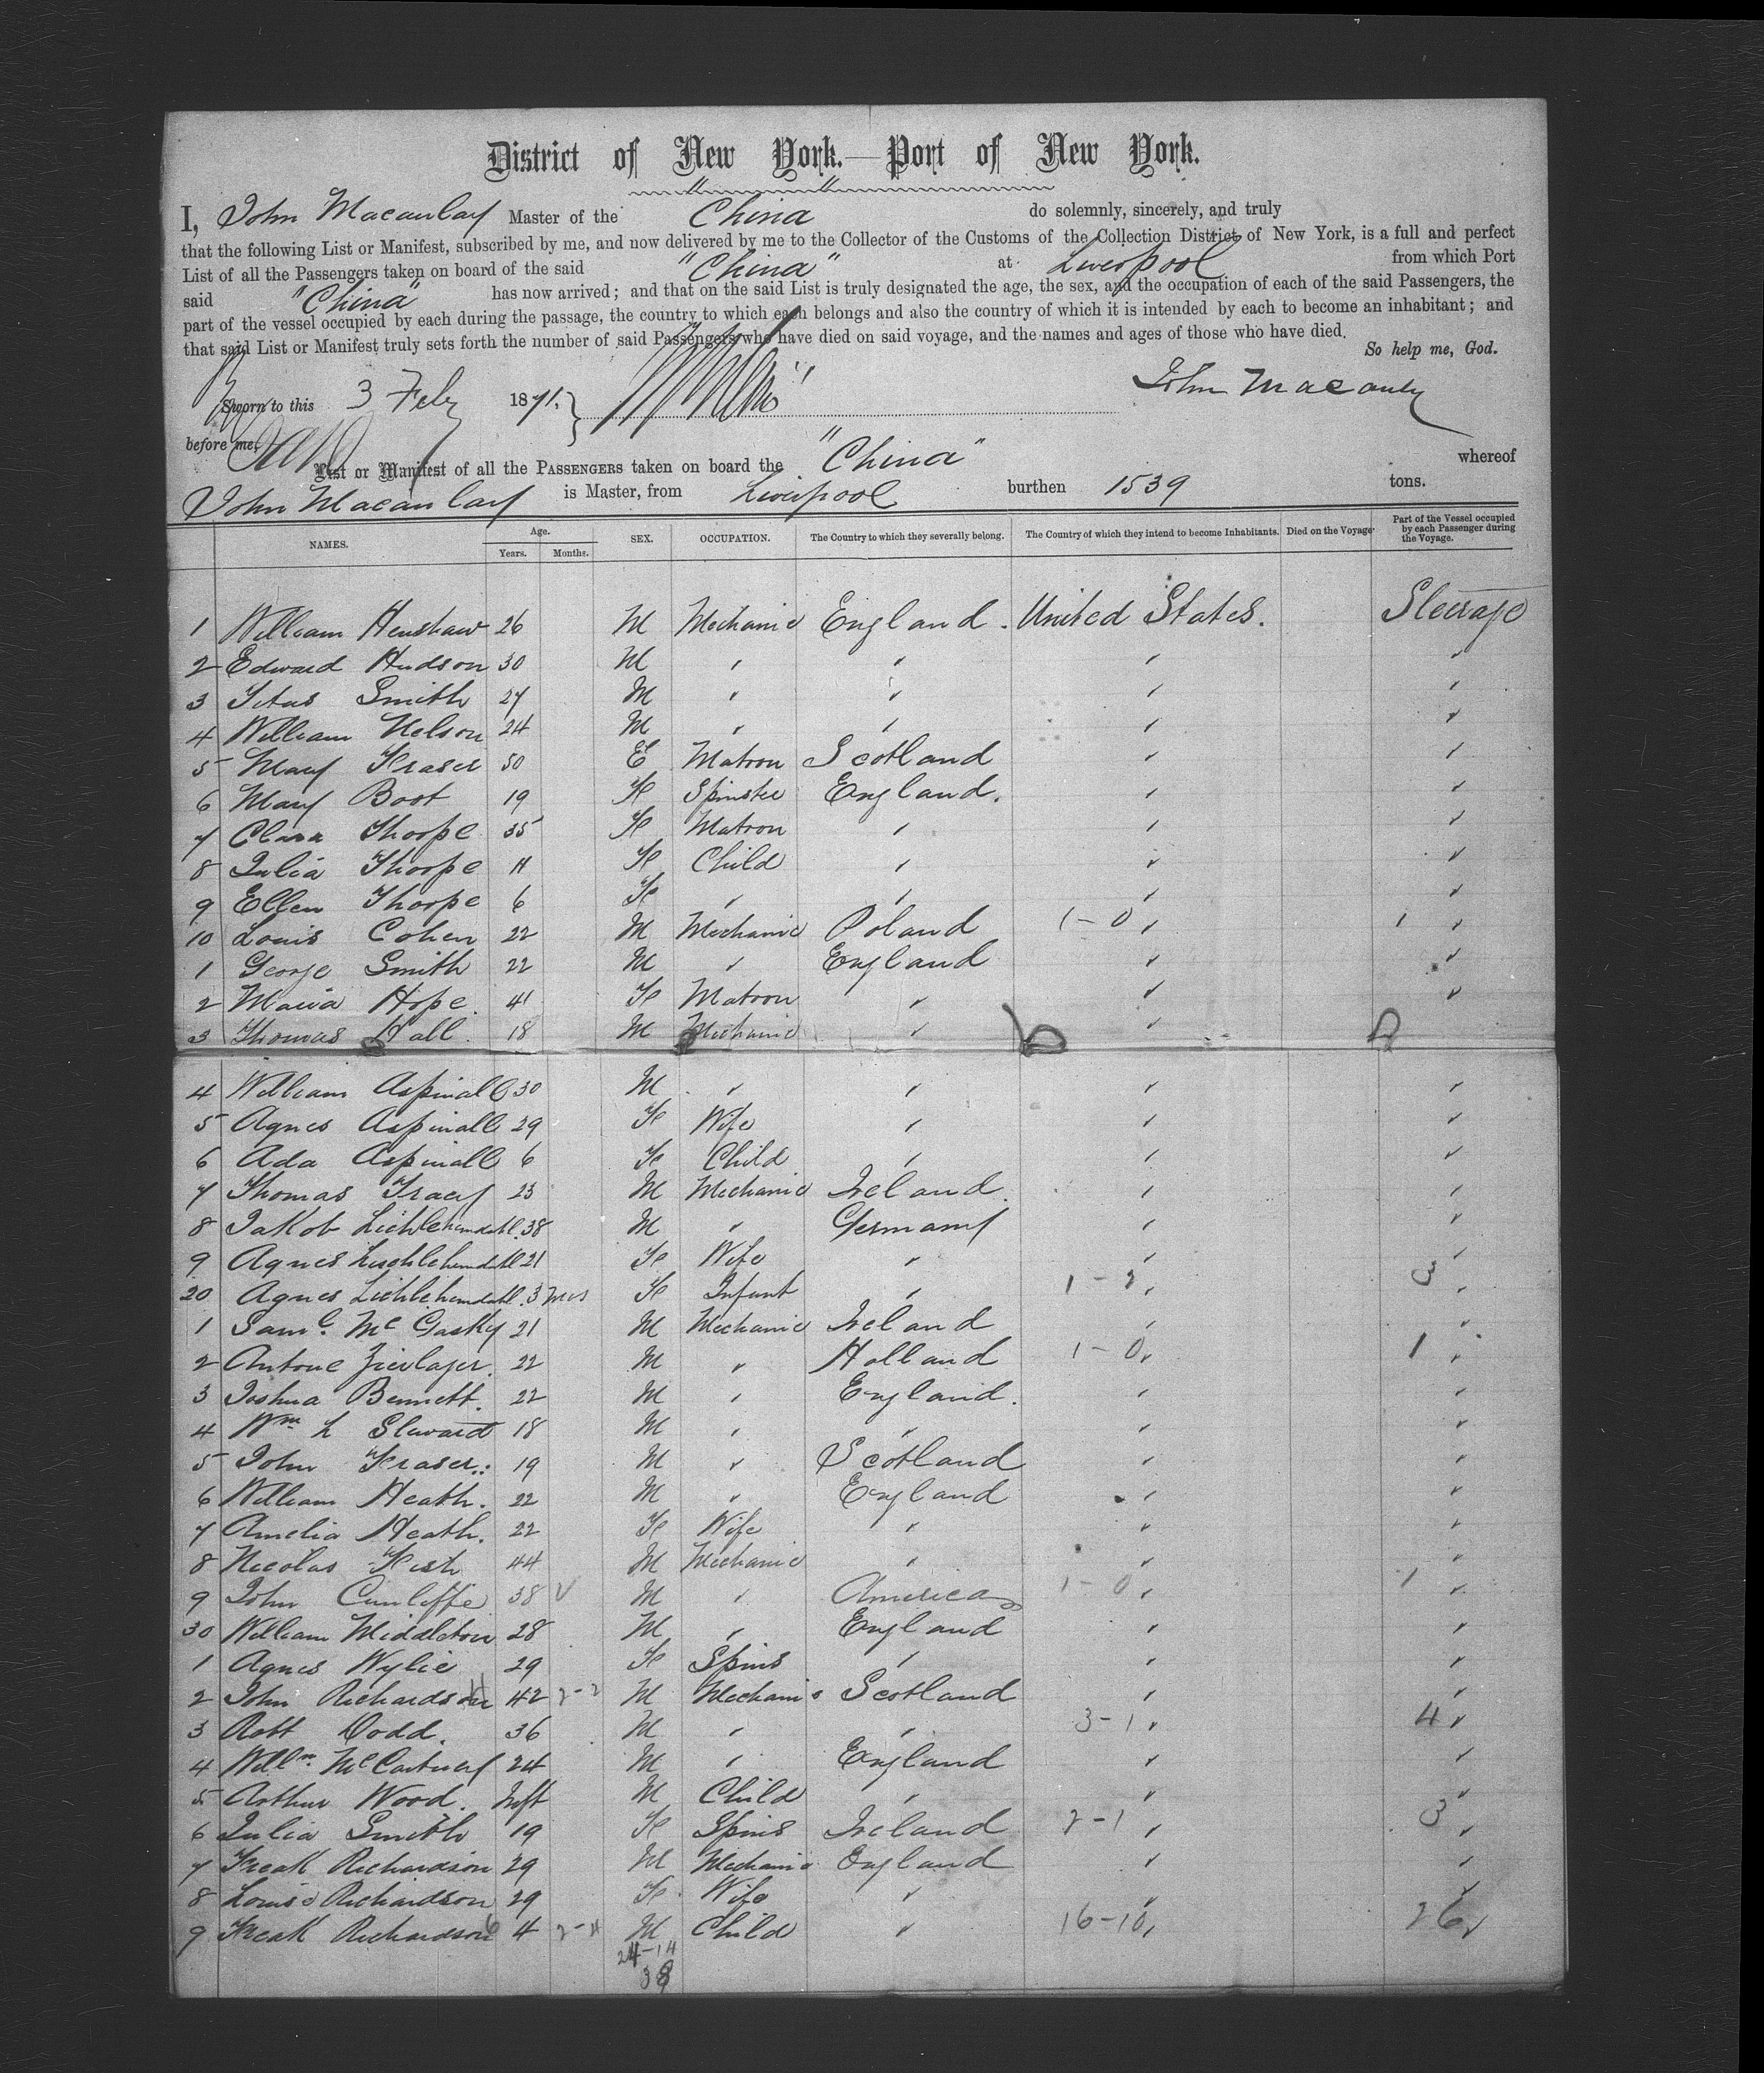 District of New York.—Port of New York.
I, John Macaulay Master of the "China" do solemnly, sincerely, and truly
that the following List or Manifest, subscribed by me, and now delivered by me to the Collector of the Customs of the Collection District of New York, is a full and perfect
List of all the Passengers taken on board of the said "China" at Liverpool from which Port
said "China" has now arrived; and that on the said List is truly designated the age, the sex, and the occupation of each of the said Passengers, the
part of the vessel occupied by each during the passage, the country to which each belongs and also the country of which it is intended by each to become an inhabitant; and
that said List or Manifest truly sets forth the number of said Passengers who have died on said voyage, and the names and ages of those who have died.
So help me, God.
Sworn to this 3 Feby 1871. John Macauly
before me,
List or Manifest of all the PASSENGERS taken on board the "China" whereof
John Macaulay is Master, from Liverpool burthen 1539 tons.
NAMES. Age. Years. Months. SEX. OCCUPATION. The Country to which they severally belong. The Country of which they intend to become Inhabitants. Died on the Voyage Part of the Vessel occupied by each Passenger during the Voyage.
1 William Henshaw 26 M Mechanic England. United States. Steerage
2 Edward Hudson 30 M " " " "
3 Titus Smith 27 M " " " "
4 William Nelson 24 M " " " "
5 Mary Fraser 50 F Matron Scotland " "
6 Mary Boot 19 F Spinster England. " "
7 Clara Thorpe 35 F Matron " " "
8 Julia Thorpe 11 F Child " " "
9 Ellen Thorpe 6 F " " " "
10 Louis Cohen 22 M Mechanic Poland 1-0 " 1 "
1 George Smith 22 M " England " "
2 Maria Hope. 41 F Matron " " "
3 Thomas Hall. 18 M Mechanic " " "
4 William Aspinall 30 M " " " "
5 Agnes Aspinall 29 F Wife " " "
6 Ada Aspinall 6 F Child " " "
7 Thomas Tracy 23 M Mechanic Ireland. " "
8 Jakob 38 M " Germany " "
9 Agnes 21 F Wife " " "
20 Agnes 3 mos F Infant " 1-2 " 3 "
1 Saml. Mc Gasky 21 M Mechanic Ireland " "
2 Antone 22 M " Holland 1-0 " 1 "
3 Joshua Bennett. 22 M " England. " "
4 Wm L Steward 18 M " " " "
5 John Fraser. 19 M " Scotland " "
6 William Heath. 22 M " England " "
7 Amelia Heath. 22 F Wife " " "
8 Nicolas Fish 44 M Mechanic " " "
9 John Cunliffe 38 M " America 1-0 " 1 "
30 William Middleton 28 M " England " "
1 Agnes Wylie 29 F Spins " " "
2 John Richardson 42 2-2 M Mechanic Scotland " "
3 Robt Dodd. 36 M " " 3-1 " 4 "
4 Willm. McCartney 24 M " England " "
5 Arthur Wood. Inft M Child " " "
6 Julia Smith 19 F Spins Ireland 2-1 " 3 "
7 Fredk Richardson 29 M Mechanic England " "
8 Louise Richardson 29 F Wife " " "
9 Fredk Richardson 4 M Child " 16-10 " 26 "
24-14
38